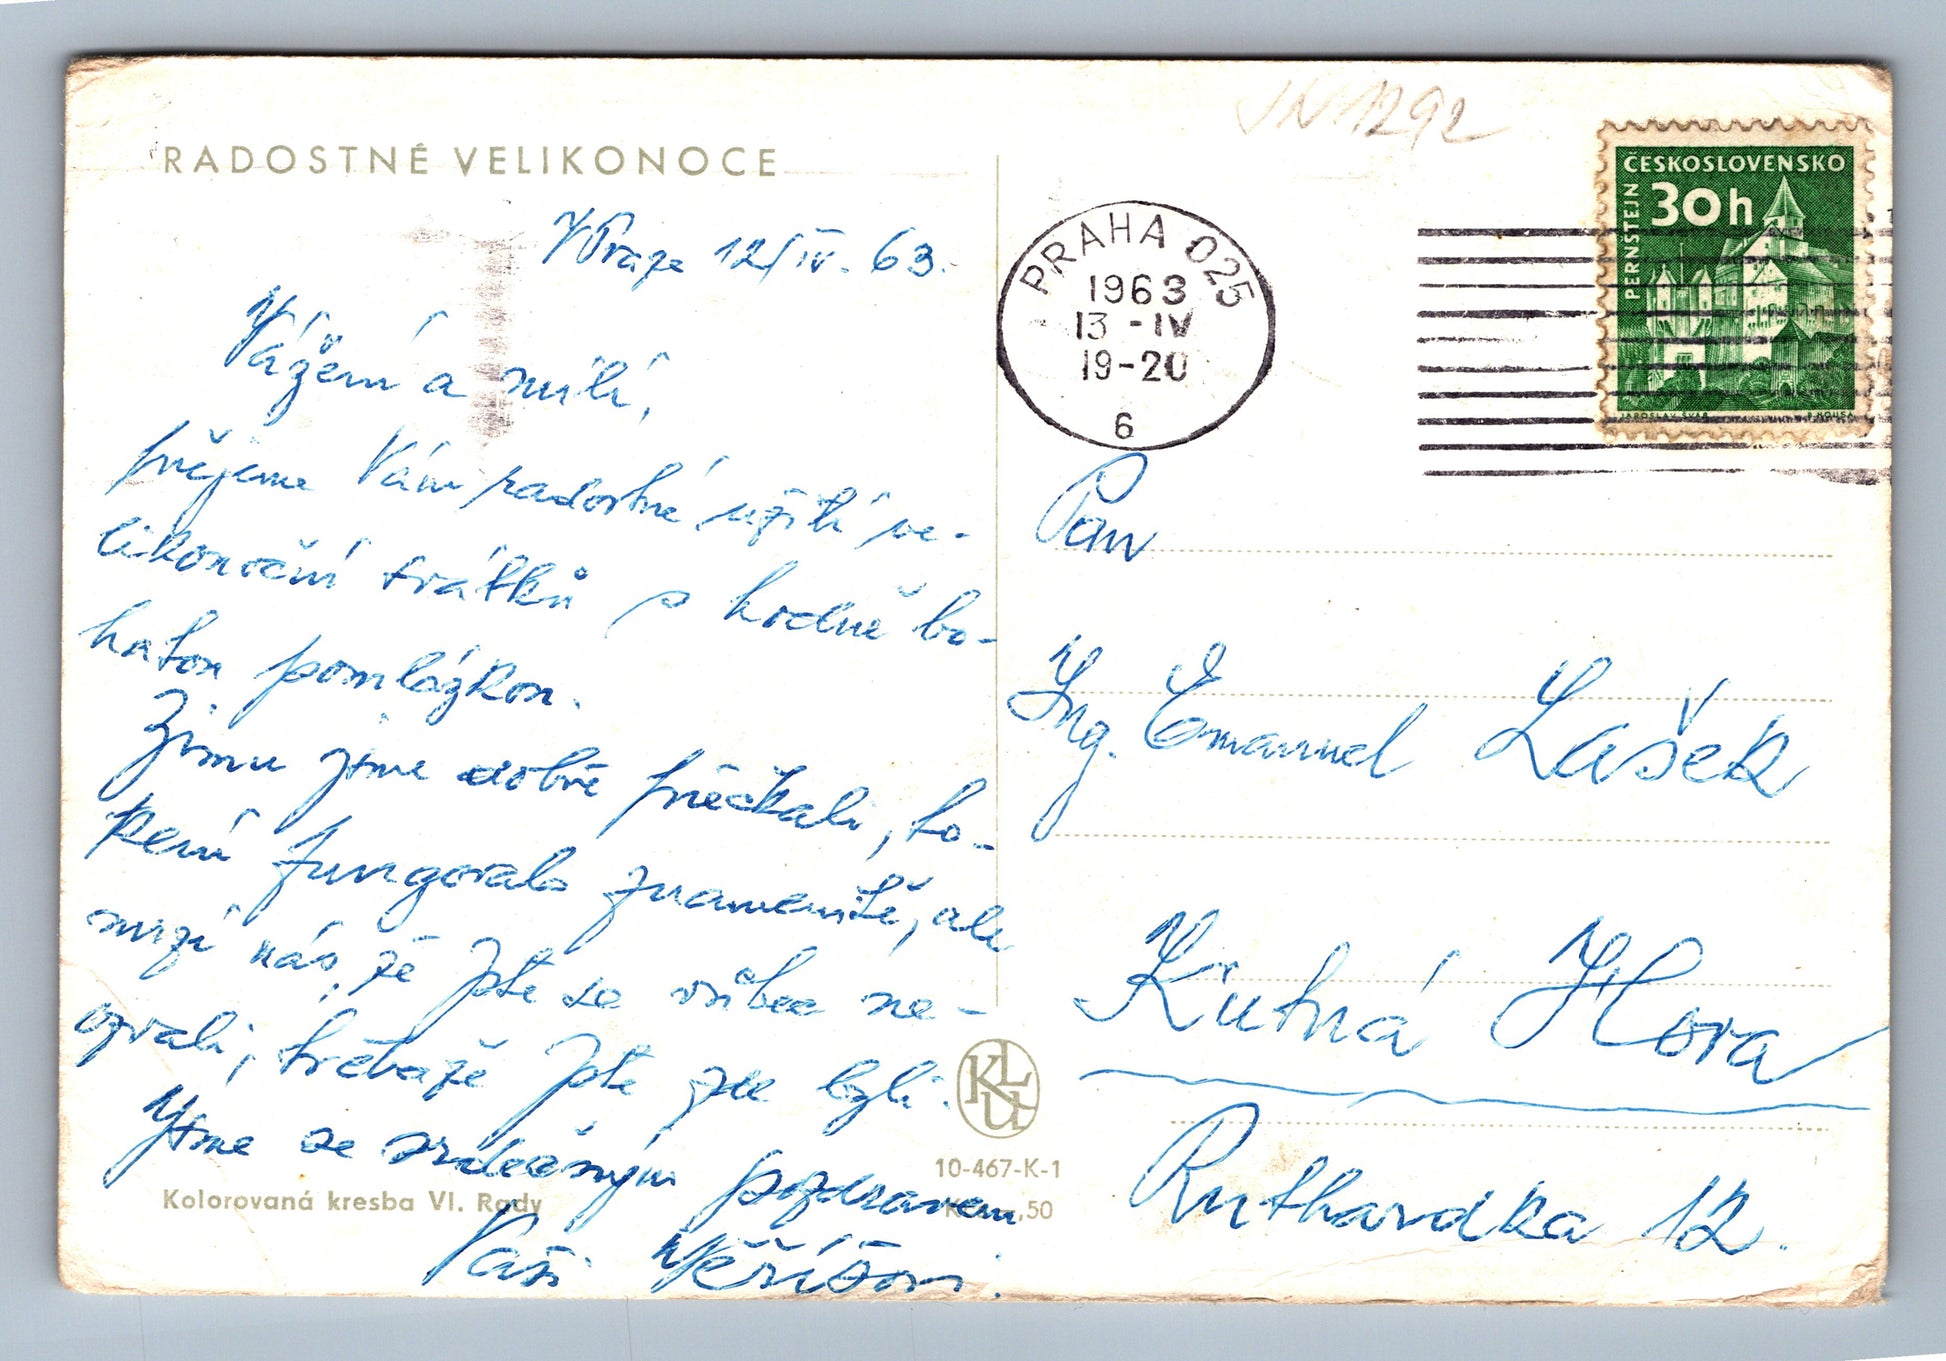 RADOSTNÉ VELIKONOCE
V Praze 12/IV. 63.
Vážení a milí,
přejeme Vám radostné užití ve-
likonoční svátků s hodně bo-
hatou pomlázkou.
Zimu jsme dobře přečkali, to-
pení fungovalo znamenitě, ale
mrzí nás, že Jste se vůbec ne-
ozvali, třebaže Jste zde byli.
Jsme se srdečným pozdravem
Vaši
KLU
10-467-K-1
,50
Kolorovaná kresba Vl. Rady
1292
PRAHA 025
1963
13 -IV
19-20
6
ČESKOSLOVENSKO
30h
PERNŠTEJN
JAROSLAV ŠVÁB
Pan
Ing. Emanuel Lašek
Kutná Hora
Ruthardka 12.